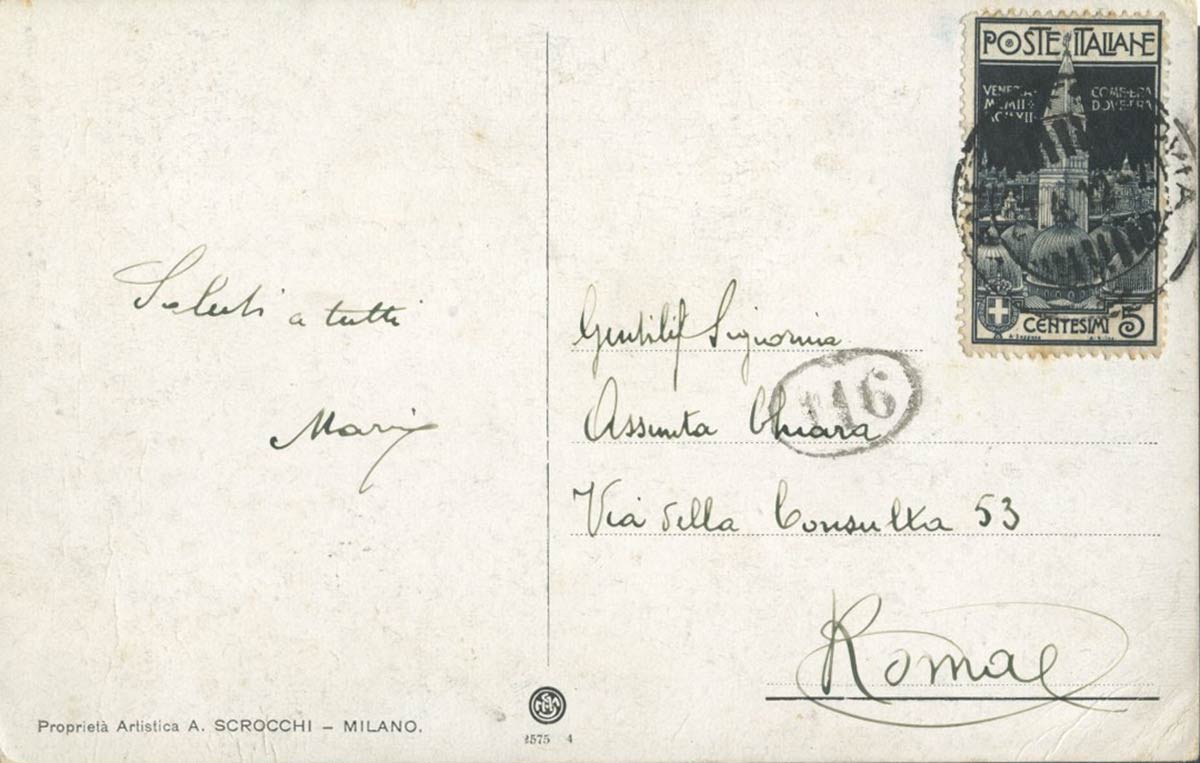 POSTE ITALIANE
VENEZIA COM'ERA
MCMII DOV'ERA
MCMXII
CENTESIMI 5
ROMA
Saluti a tutti
Gentilis Signorina
116
Assunta Chiara
Via della Consulta 53
Roma
Proprietà Artistica A. SCROCCHI – MILANO.
2575 4